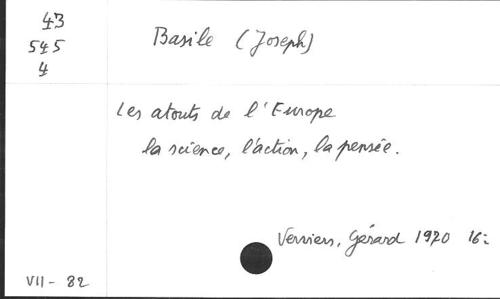 43
545
4
Basile (Joseph)
Les atouts de l'Europe
la science, l'action, la pensée.
Verviers, Gérard 1970 16:
VII - 82